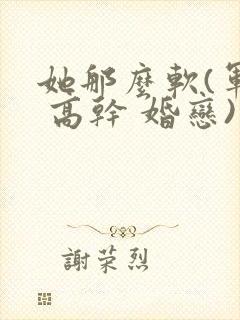 她那麼軟(軍
高幹 婚戀)
謝荣烈